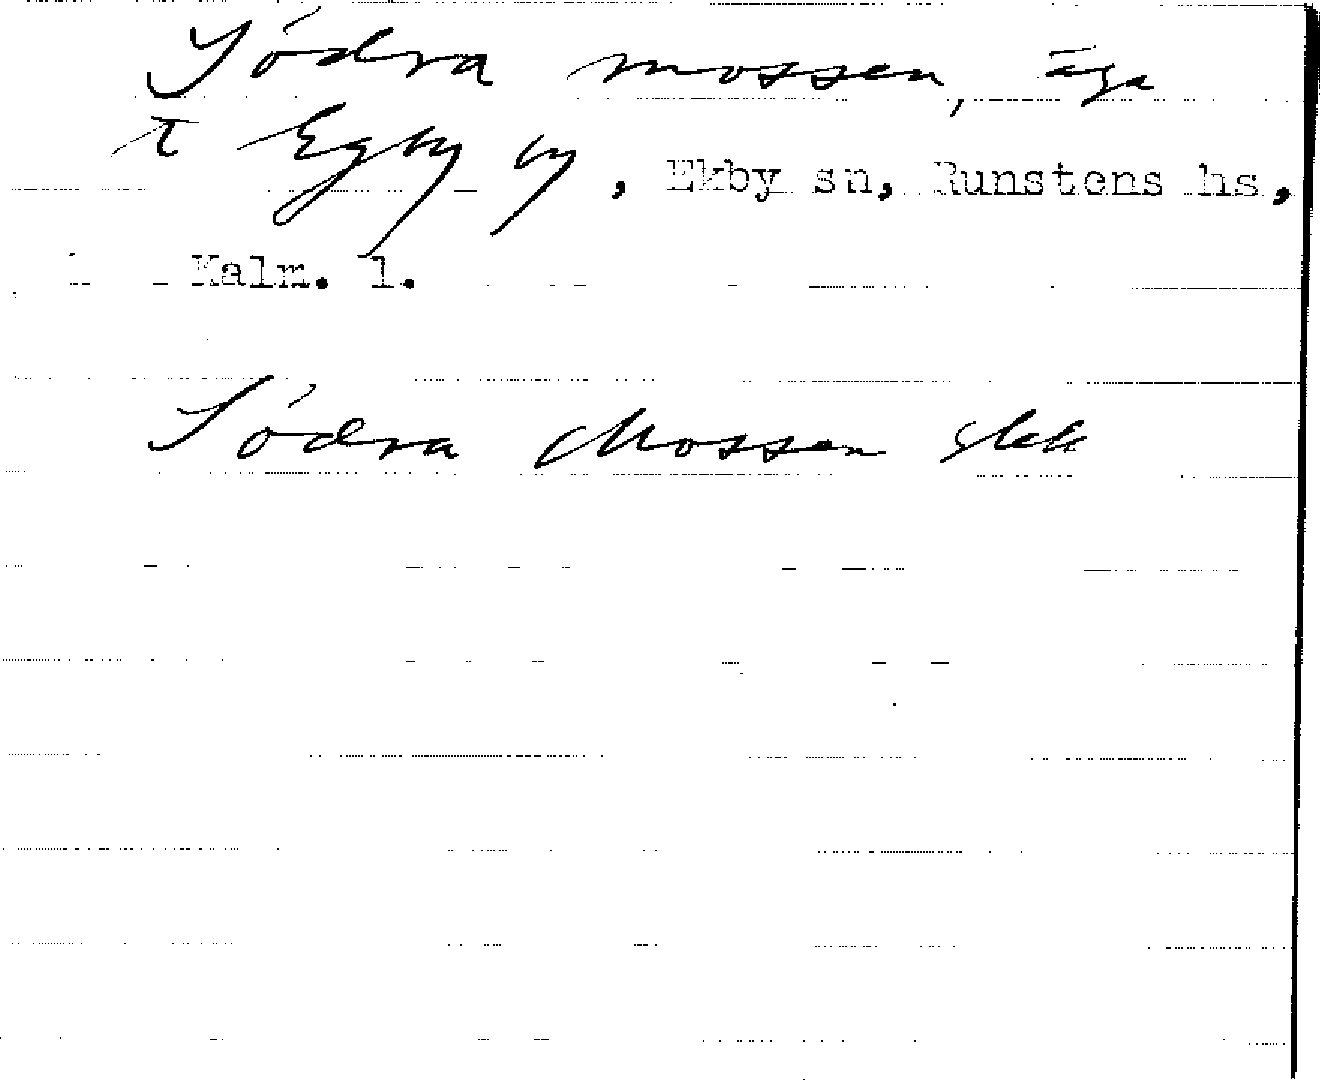 Södra mossen, äga
t Egby by, Ekby sn, Runstens hs,
Kalm. l.
Södra Mossen